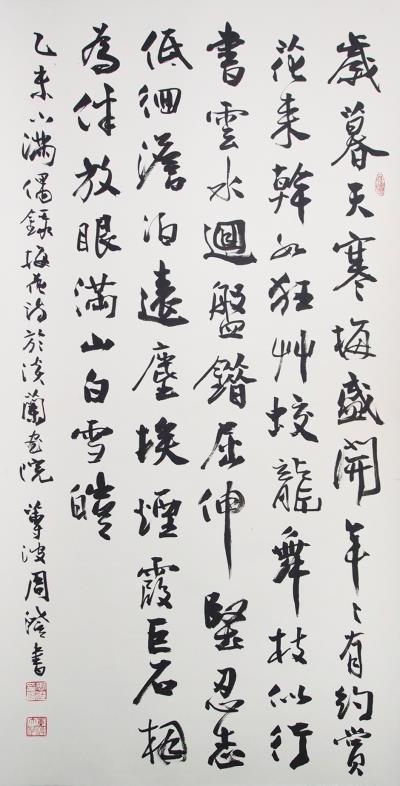 歲暮天寒梅盛開年〻有約賞
花來幹如狂艸蛟龍舞枝似行
書雲水迴盤錯屈伸堅忍志
低徊澹泊遠塵埃煙霞巨石相
為伴放眼滿山白雪皚
乙未小滿偶錄梅花詩於淡蘭畫院 蓴波周澄書